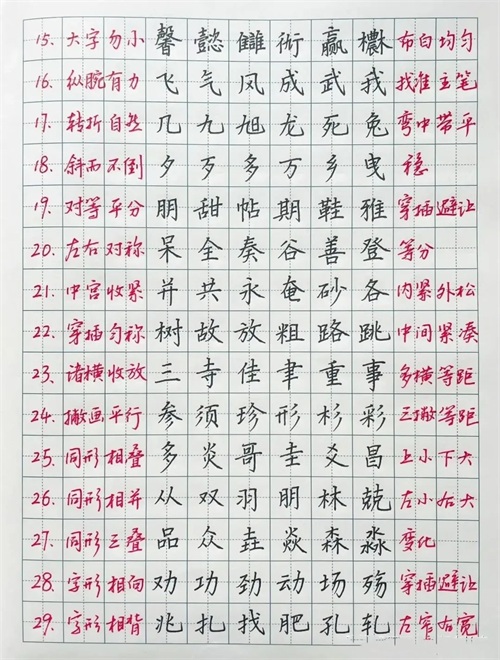 15. 大字勿小 馨 懿 雠 衔 赢 檄 布白均匀
16. 纵腕有力 飞 气 凤 成 武 我 找准主笔
17. 转折自然 几 九 旭 龙 死 兔 弯中带平
18. 斜而不倒 夕 歹 多 万 乡 曳 稳
19. 对等平分 朋 甜 帖 期 鞋 雅 穿插避让
20. 左右对称 呆 全 奏 谷 善 登 等分
21. 中宫收紧 并 共 永 奄 砂 各 内紧外松
22. 穿插匀称 树 故 放 粗 路 跳 中间紧凑
23. 诸横收放 三 寺 佳 聿 重 事 多横等距
24. 撇画平行 参 须 珍 形 杉 彩 三撇等距
25. 同形相叠 多 炎 哥 圭 爻 昌 上小下大
26. 同形相并 从 双 羽 朋 林 兢 左小右大
27. 同形三叠 品 众 垚 焱 森 淼 变化
28. 字形相向 劝 功 劲 动 场 殇 穿插避让
29. 字形相背 兆 扎 找 肥 孔 轧 左窄右宽